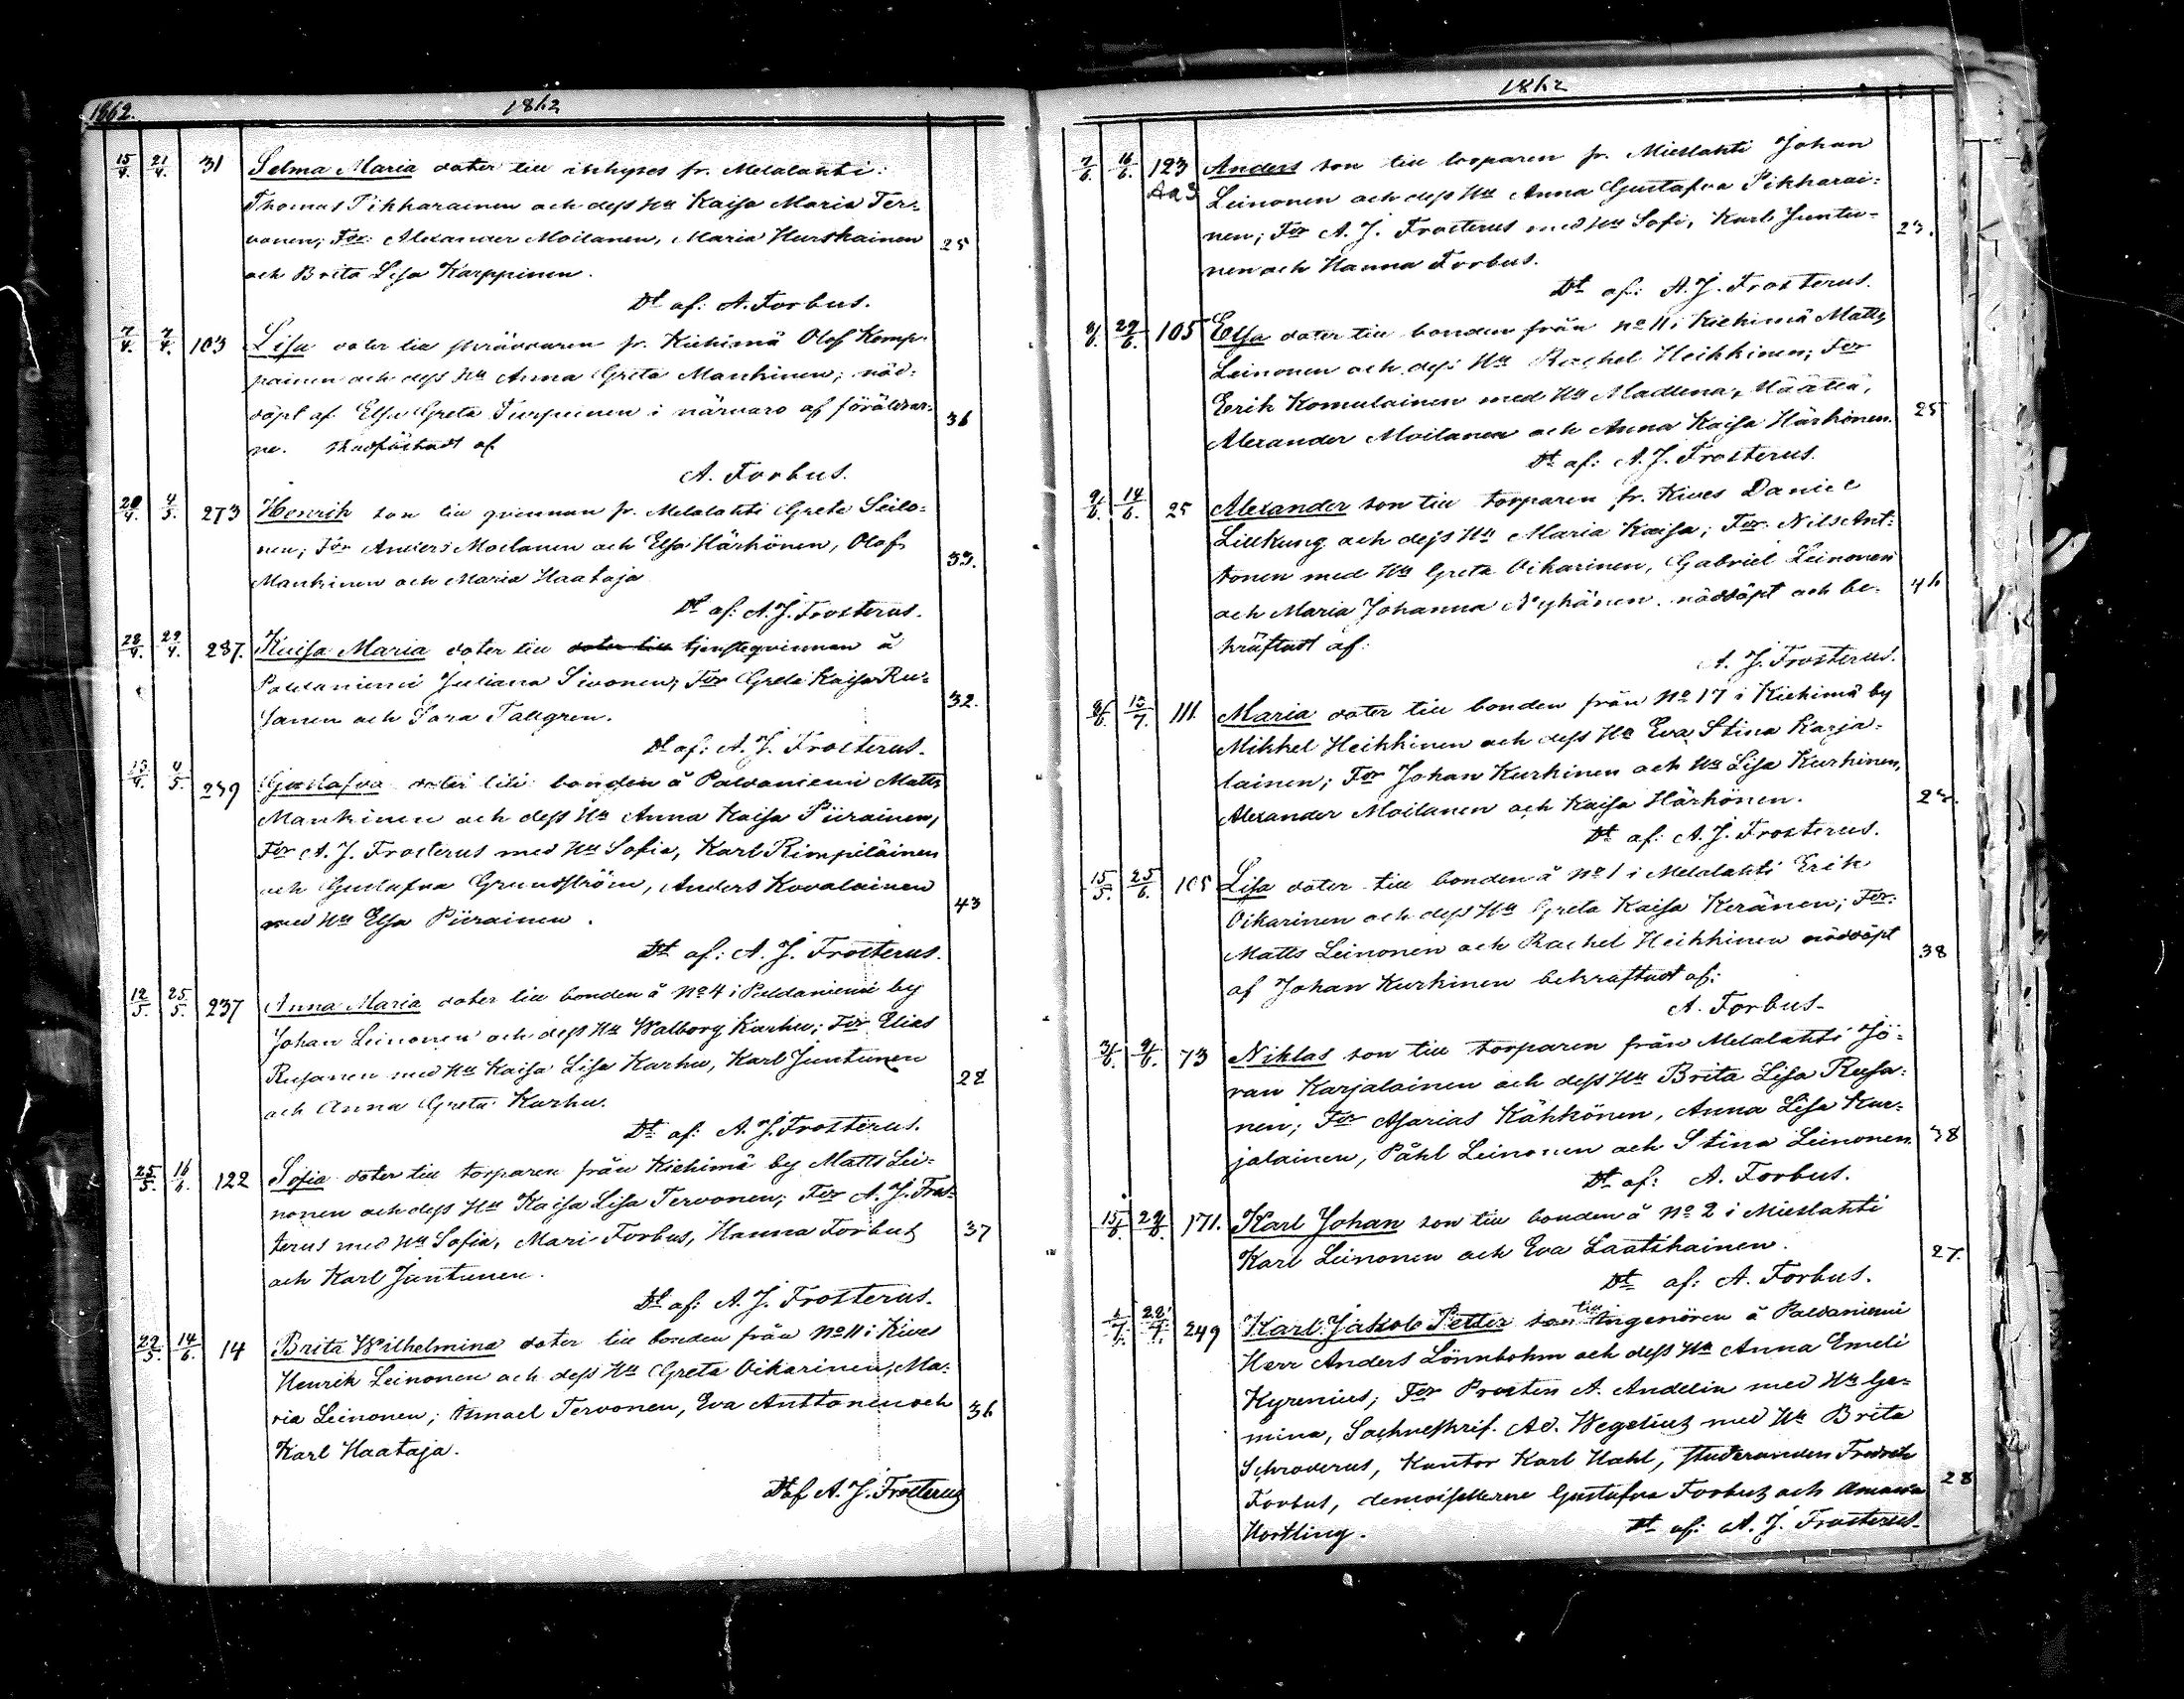 1862. 1862
15/4. 21/4. 31 Selma Maria doter till inhyses fr. Melalahti:
Thomas Pikkarainen och dess Hu Kaisa Maria Ter-
vonen; Fdr: Alexander Moilanen, Maria Hurskainen 25
och Brita Lisa Karppinen.
Dt af: A. Forbus.
7/4. 7/4. 103 Lisa doter till skräddaren fr. Kiehimä Olof Komp-
painen och dess Hu Anna Greta Mankinen; nöd-
döpt af Elsa Greta Turpeinen i närvaro af föräldrar- 36
ne. stadfästadt af
A. Forbus.
20/4. 4/5. 273 Henrik son till qvinnan fr. Melalahti Greta Seilo-
nen; Fdr Anders Moilanen och Elsa Härkönen, Olof 33.
Mankinen och Maria Haataja
Dt af: A. J. Frosterus.
28/4. 29/4. 287. Kaisa Maria doter till doter till tjensteqvinnan å
Paldaniemi Juliana Sivonen, Fdr Greta Kaisa Ru- 32.
sanen och Sara Tallgren.
Dt af: A. J. Frosterus.
13/4. 4/5. 239 Gustafva doter till bonden å Paldaniemi Matts
Mankinen och dess Hu Anna Kaisa Piirainen,
Fdr A. J. Frosterus med Hu Sofia, Karl Rimpiläinen
och Gustafva Grundström, Anders Kovalainen 43
med Hu Elsa Piirainen.
Dt af: A. J. Frosterus.
12/5. 25/5. 237 Anna Maria doter till bonden å No 4 i Paldaniemi by
Johan Leinonen och dess Hu Walborg Karhu; Fdr Elias
Rusanen med Hu Kaisa Lisa Karhu, Karl Juntunen 28
och Anna Greta Karhu.
Dt af: A. J. Frosterus.
25/5. 16/6. 122 Sofia doter till torparen från Kiehimä by Matts Lei-
nonen och dess Hu Kaisa Lisa Tervonen; Fdr A. J. Fros-
terus med Hu Sofia, Mari Forbus, Hanna Forbus 37
och Karl Juntunen.
Dt af: A. J. Frosterus.
29/5. 14/6. 14 Brita Wilhelmina doter till bonden från No 11 i Kives
Henrik Leinonen och dess Hu Greta Oikarinen; Ma-
ria Leinonen; Ismael Tervonen, Eva Anttonen och 36
Karl Haataja.
Dt af A. J. Frosterus
1862
7/6. 16/6. 123 Anders son till torparen fr. Mieslahti Johan
Aa3 Leinonen och dess Hu Anna Gustafva Pikkarai-
nen; Fdr A. J. Frosterus med Hu Sofi, Karl Juntu- 23.
nen och Hanna Forbus.
Dt af: A. J. Frosterus.
8/6. 29/6. 105 Elsa doter till bonden från No 11 i Kiehimä Matts
Leinonen och dess Hu Rachel Heikkinen; Fdr
Eerik Komulainen med Hu Madlena, Määttä,
Alexander Moilanen och Anna Kaisa Härkönen. 25
Dt af: A. J. Frosterus.
9/6. 14/6. 25 Alexander son till torparen fr. Kives Daniel
Lillkung och dess Hu Maria Kaisa; Fdr Nils Ant-
tonen med Hu Greta Oikarinen, Gabriel Leinonen
och Maria Johanna Nykänen. nöddöpt och be- 46
kräftadt af:
A. J. Frosterus.
8/6. 13/7. 111. Maria doter till bonden från No 17 i Kiehimä by
Mikkel Heikkinen och dess Hu Eva Stina Karja-
lainen; Fdr Johan Kurkinen och Hu Lisa Kurkinen,
Alexander Moilanen och Kaisa Härkönen.
Dt af: A. J. Frosterus.
15/5. 25/6. 105 Lisa doter till bonden å No 1 i Melalahti Erik
Oikarinen och dess Hu Greta Kaisa Keränen; Fdr:
Matts Leinonen och Rachel Heikkinen nöddöpt 38
af Johan Kurkinen bekräftadt af:
A. Forbus.
3/6. 9/6. 73 Niklas son till torparen från Melalahti Jö-
ran Karjalainen och dess Hu Brita Lisa Rusa-
nen; Fdr Asarias Kähkönen, Anna Lisa Kar-
jalainen, Påhl Leinonen och Stina Leinonen. 38
Dt af: A. Forbus.
15/6. 29/6. 171. Karl Johan son till bonden å No 2 i Mieslahti
Karl Leinonen och Eva Laatikainen. 27.
Dt af: A. Forbus.
1/7. 22/7. 249 Karl Jakob Petter son till Ingenören å Paldaniemi
Herr Anders Lönnbohm och dess Hu Anna Emeli
Kyrenius; Fdr Prosten A. Andelin med Hu Ge-
mina, Sockneskrif. Ad. Wegelius med Hu Brita
Schroderus, Kantor Karl Hahl, studeranden Fredrik
Forbus, demoisellerne Gustafva Forbus och Amanda 28
Hortling. Dt af: A. J. Frosterus.